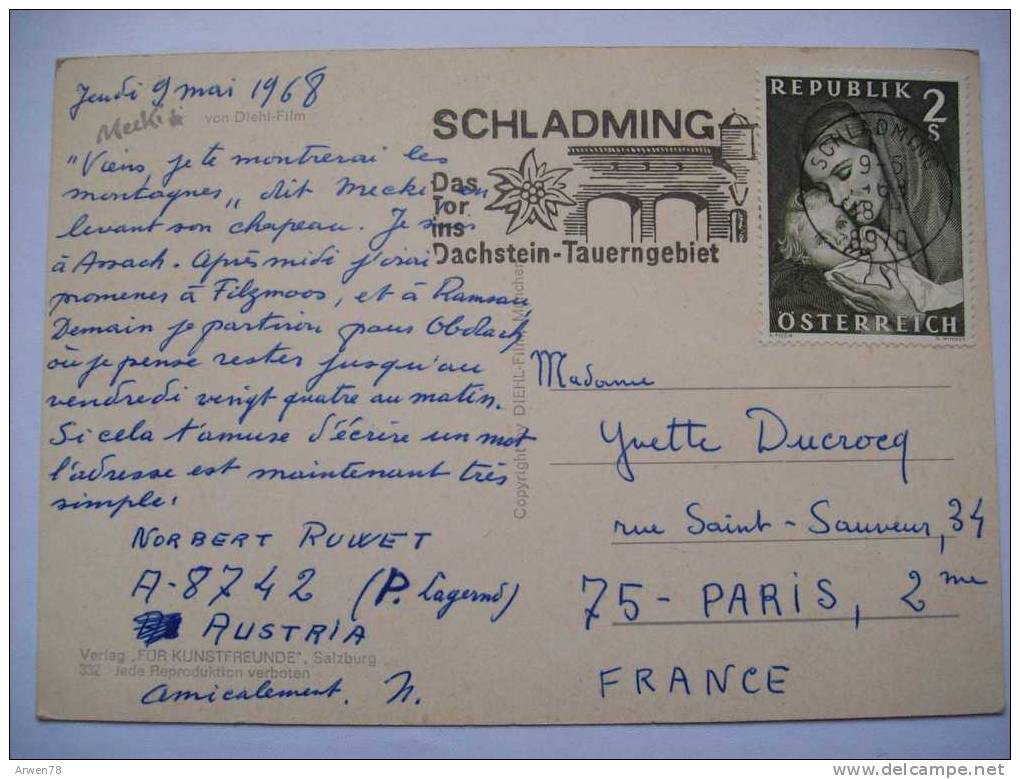 Jeudi 9 mai 1968
Mecki
von Diehl-Film
"Viens, je te montrerai les
montagnes„ dit Mecki en
levant son chapeau. Je suis
à Assach. Après midi j'irai
promener à Filzmoos, et à Ramsau
Demain je partirai pour Obdach
où je pense rester jusqu'au
vendredi vingt quatre au matin.
Si cela t'amuse d'écrire un mot
l'adresse est maintenant très
simple:
NORBERT RUWET
A-8742 (P. Lagernd)
AUSTRIA
Verlag „FÜR KUNSTFREUNDE", Salzburg
332 Jede Reproduktion verboten
Amicalement. N.
Copyright by DIEHL-Film, München
SCHLADMING
Das
Tor
ins
Dachstein-Tauerngebiet
REPUBLIK 2
S
SCHLADMING
9-5
68
8970
ÖSTERREICH
Madame
Yvette Ducrocq
rue Saint-Sauveur, 34
75 - PARIS, 2me
FRANCE
Arwen78
delcampe.net